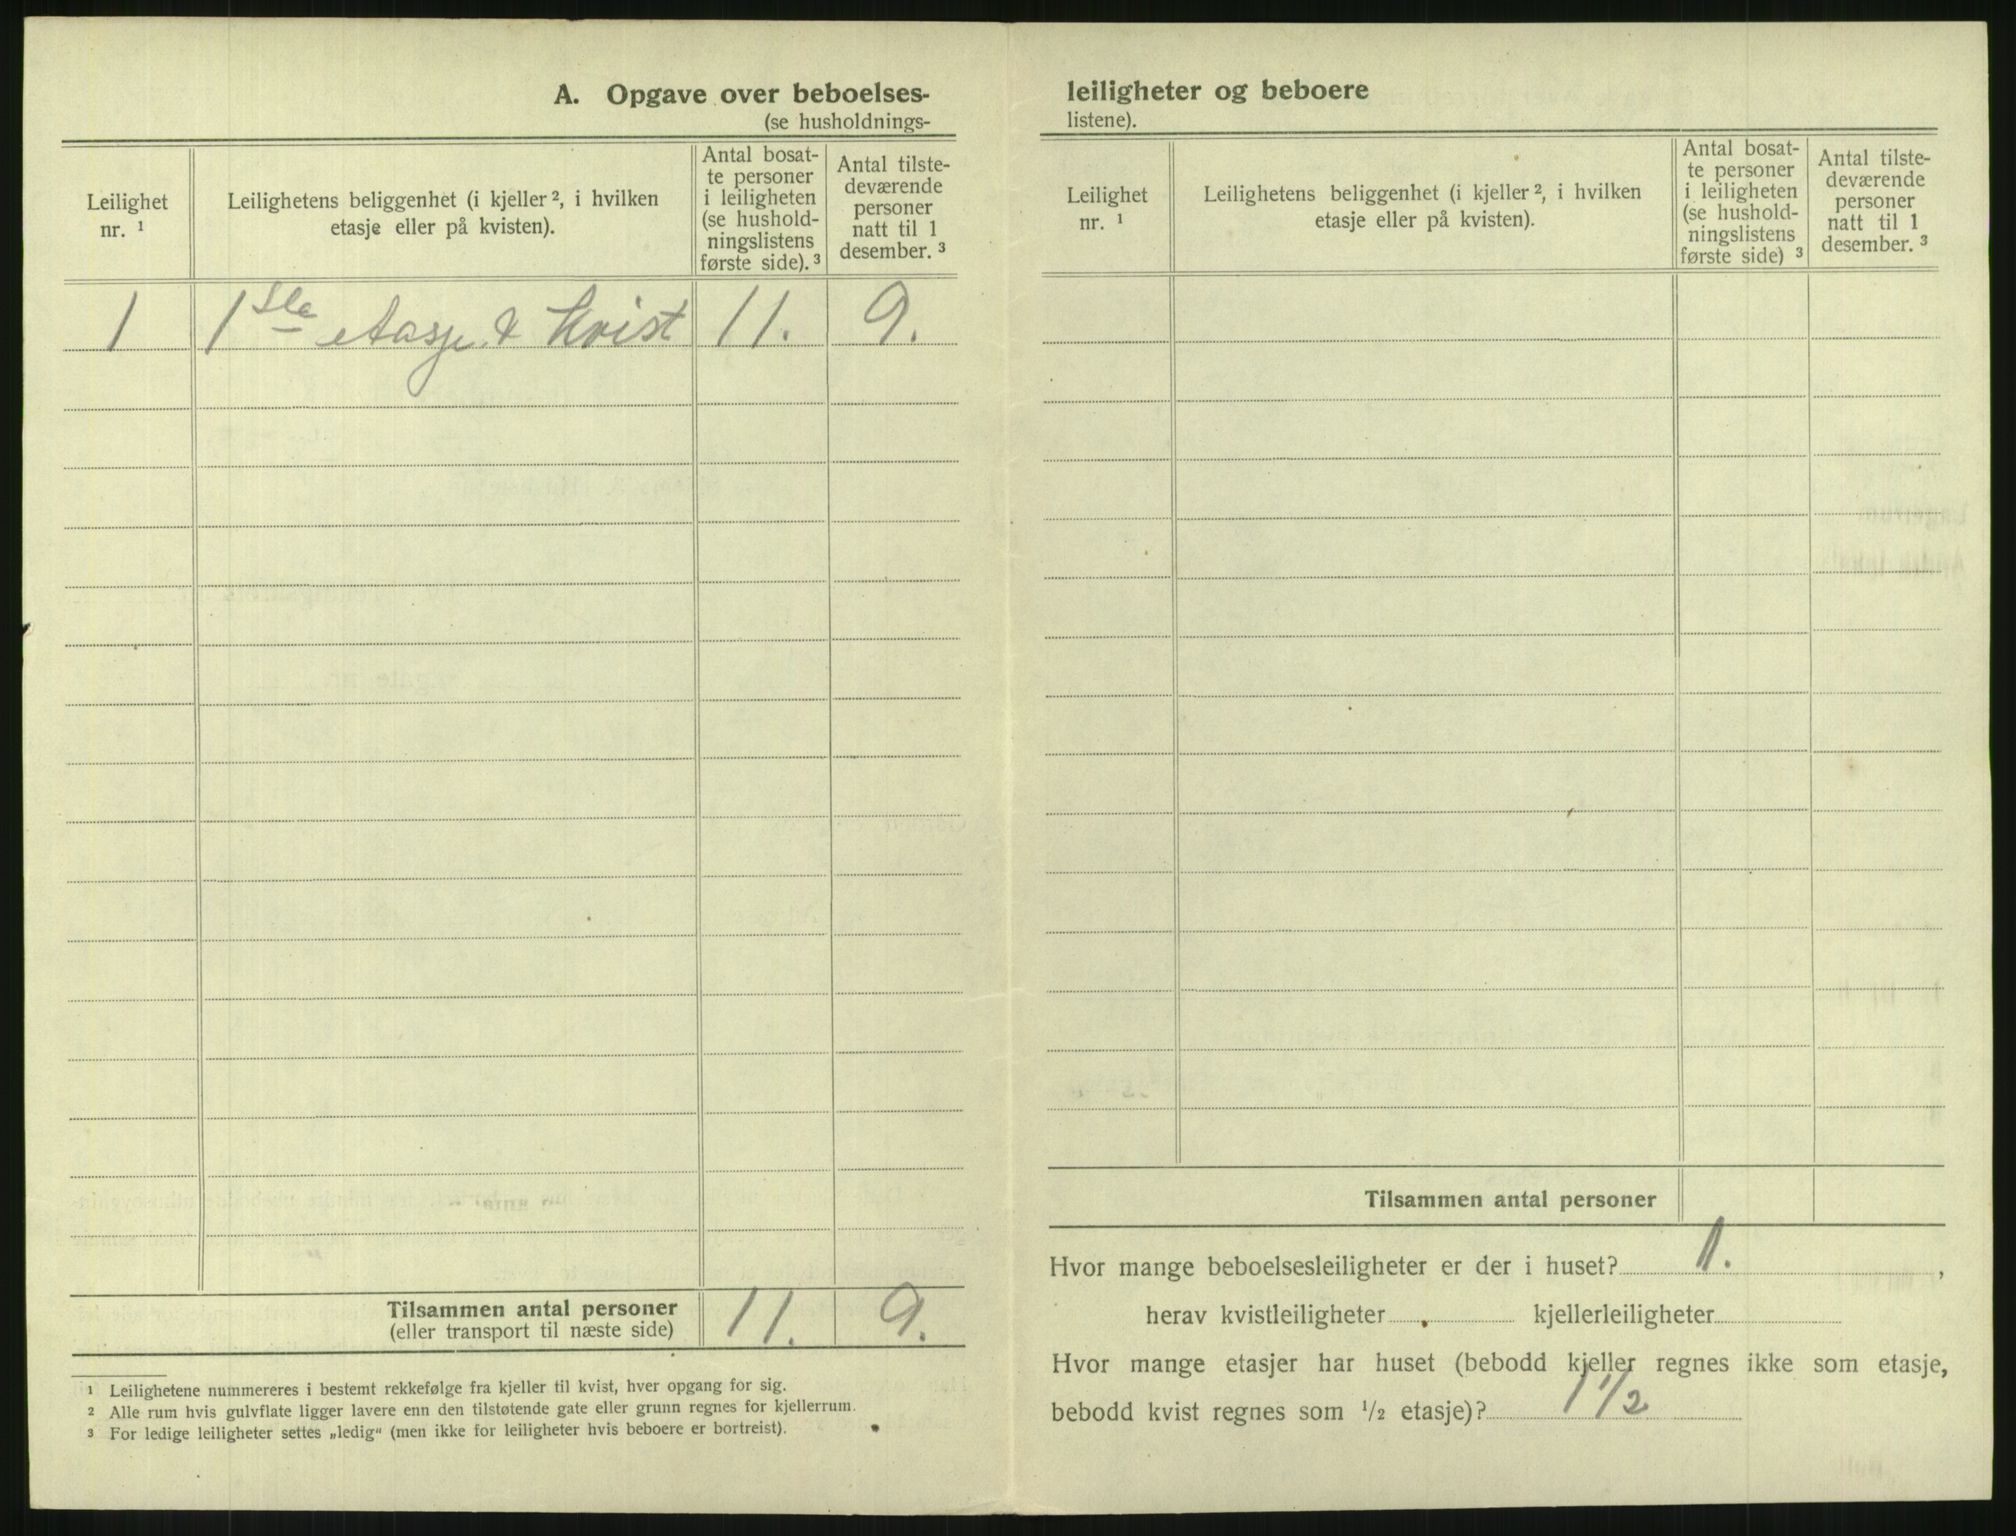 A. Opgave over beboelses-
(se husholdnings-
Leilighet
nr. ¹
Leilighetens beliggenhet (i kjeller ², i hvilken
etasje eller på kvisten).
Antal bosat-
te personer
i leiligheten
(se hushold-
ningslistens
første side). ³
Antal tilste-
deværende
personer
natt til 1
desember. ³
1 1ste etasje & Kvist 11. 9.
Tilsammen antal personer
(eller transport til næste side)
11. 9.
¹ Leilighetene nummereres i bestemt rekkefølge fra kjeller til kvist, hver opgang for sig.
² Alle rum hvis gulvflate ligger lavere enn den tilstøtende gate eller grunn regnes for kjellerrum.
³ For ledige leiligheter settes „ledig“ (men ikke for leiligheter hvis beboere er bortreist).
leiligheter og beboere
listene).
Leilighet
nr. ¹
Leilighetens beliggenhet (i kjeller ², i hvilken
etasje eller på kvisten).
Antal bosat-
te personer
i leiligheten
(se hushold-
ningslistens
første side) ³
Antal tilste-
deværende
personer
natt til 1
desember. ³
Tilsammen antal personer
Hvor mange beboelsesleiligheter er der i huset? 1. ,
herav kvistleiligheter kjellerleiligheter
Hvor mange etasjer har huset (bebodd kjeller regnes ikke som etasje,
bebodd kvist regnes som ½ etasje)? 1 1/2